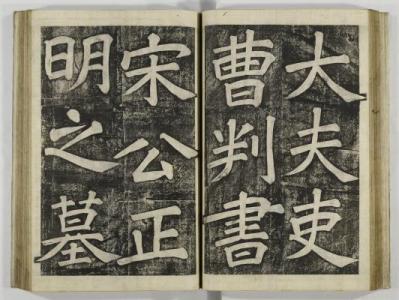 大夫吏
曹判書
宋公正
明之墓